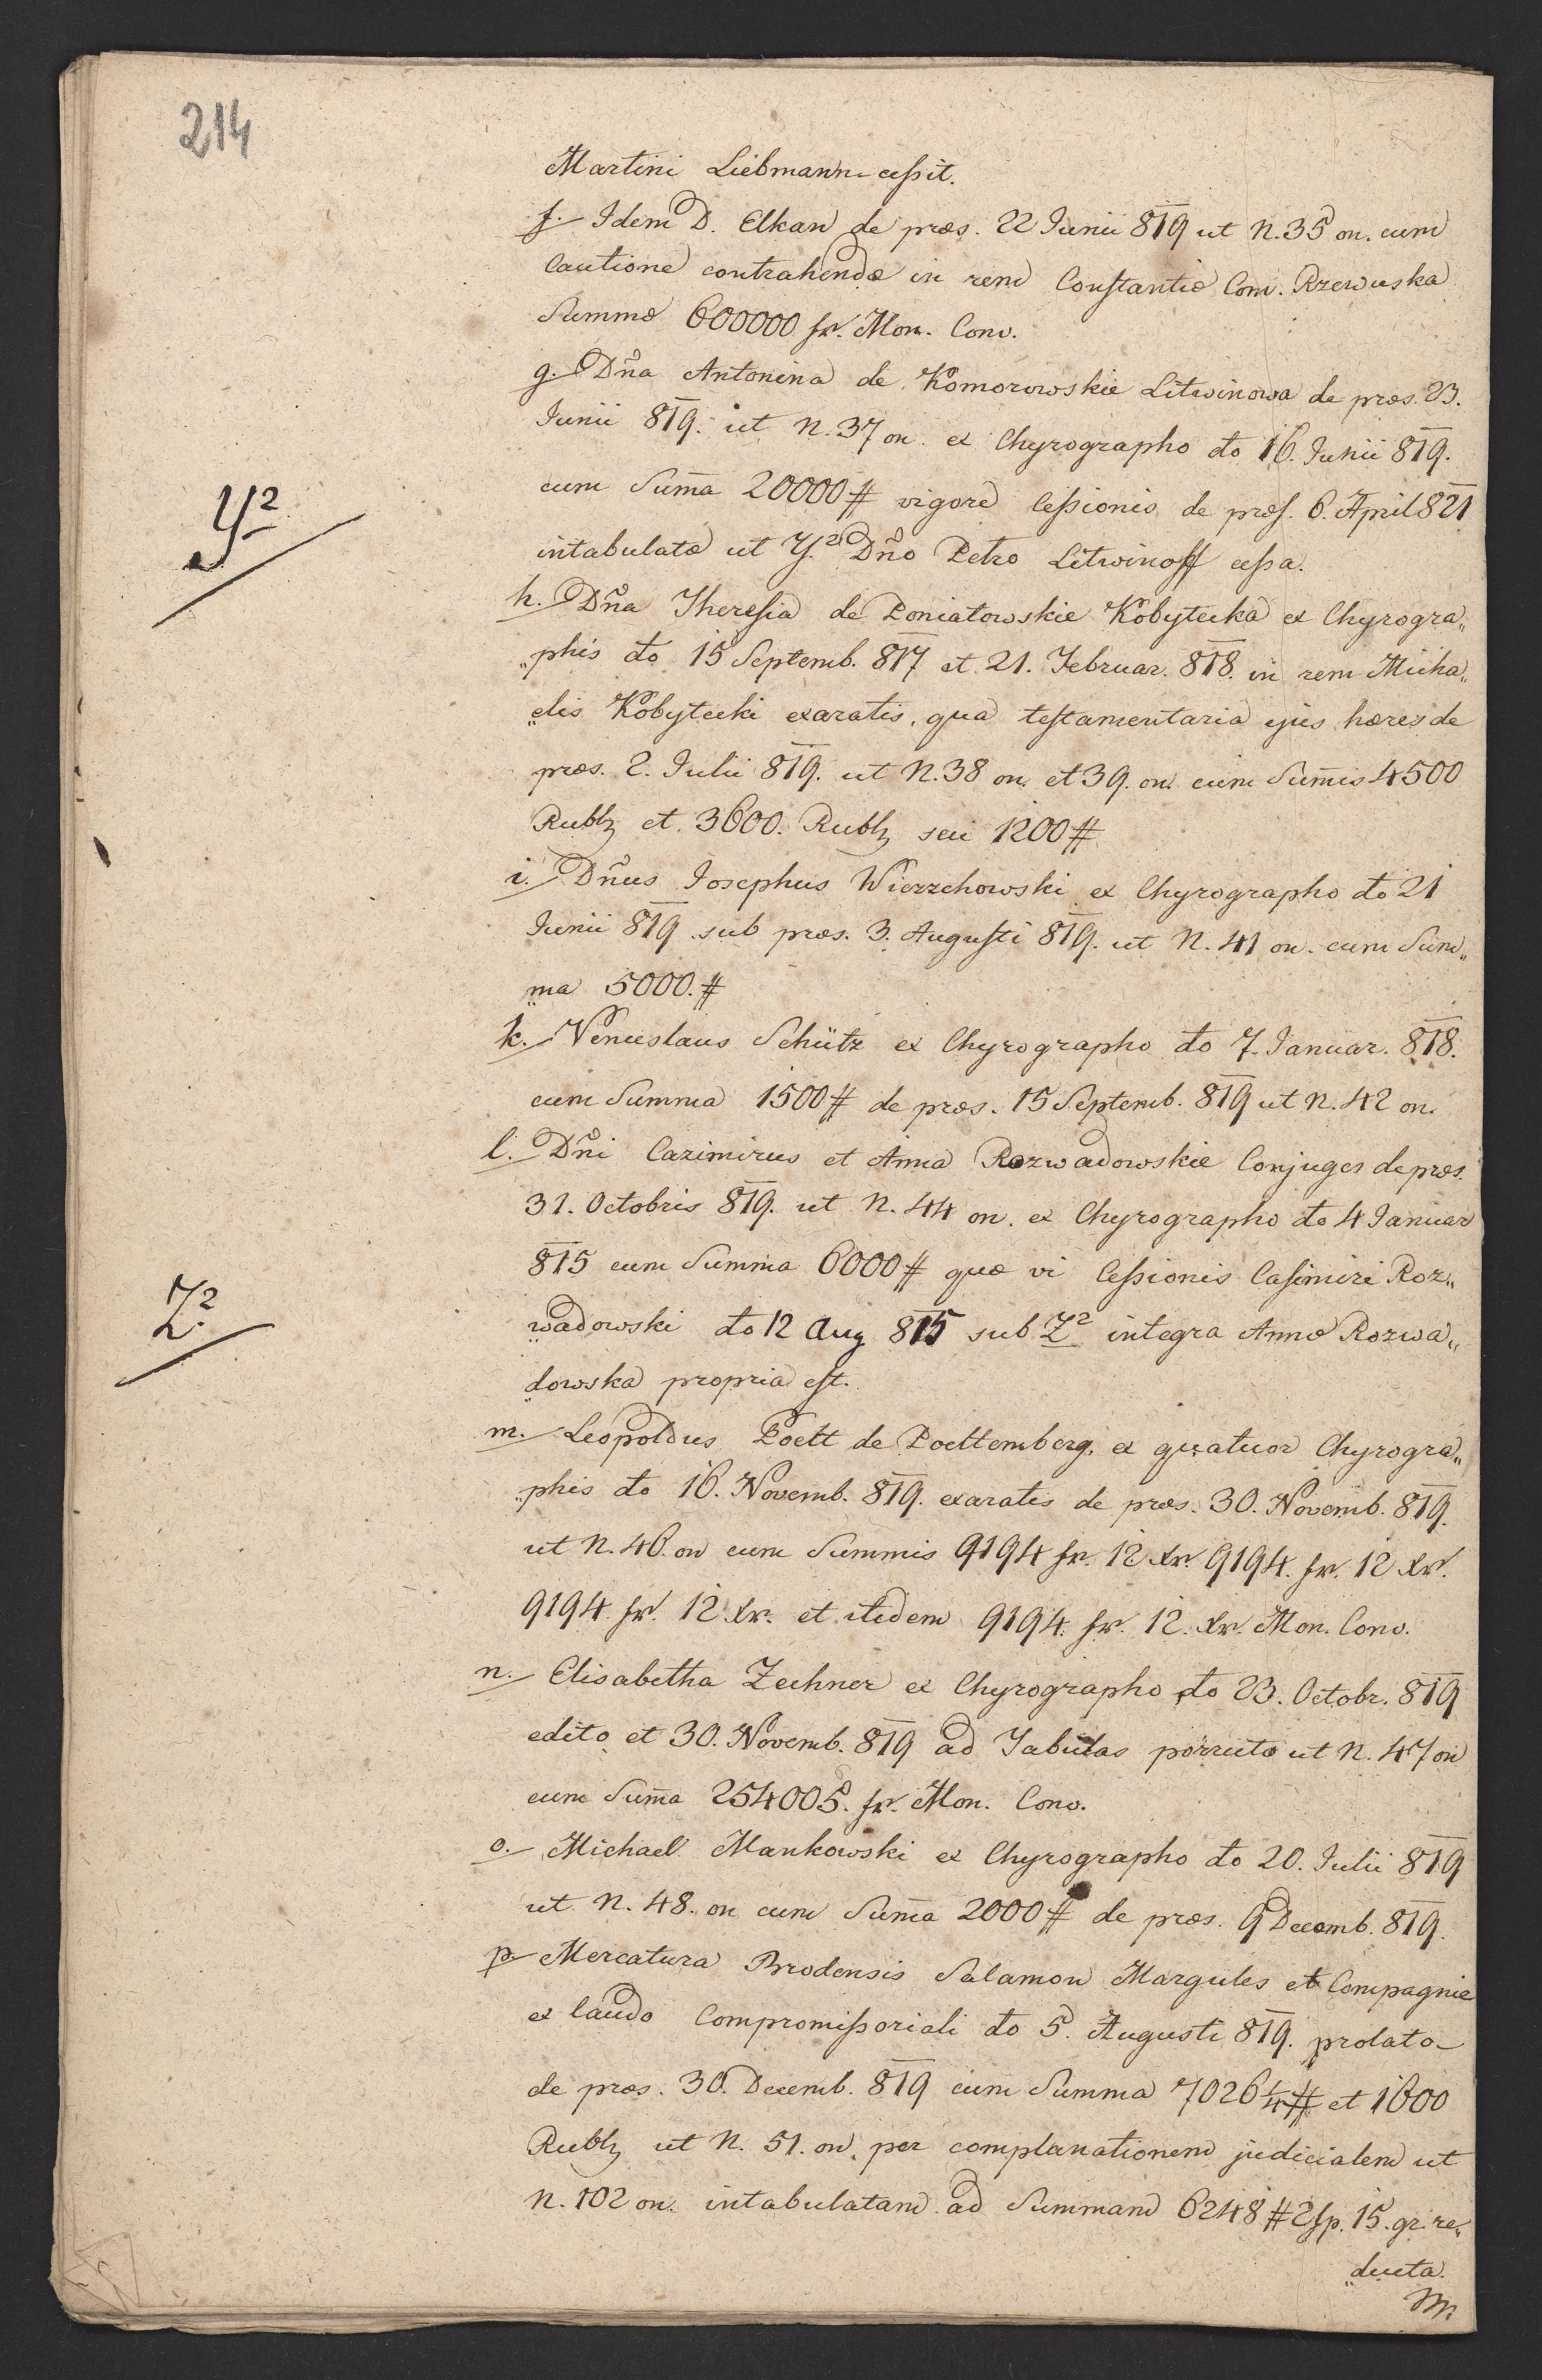 214
Martini Liebmann cessit.
f. Idem D. Elkan de præs. 22 Junii 819 ut N. 35 on. cum
Cautione contrahendæ in rem Constantiæ Com. Rzewuska
Summæ 600000 fr. Mon. Conv.
g. Dña Antonina de Komorowskie Litwinowa de præs. 23.
Junii 819. ut N. 37 on. ex Chyrographo dto 16. Junii 819.
Y²
cum Sum̄a 20000 # vigore Cessionis de præs. 6. April 821
intabulatæ ut Y² Dño Petro Litwinoff cessa.
h. Dña Theresia de Poniatowskie Kobytecka ex Chyrogra„
„phis dto 15 Septemb. 817 et 21. Februar. 818. in rem Micha„
„elis Kobytecki exaratis, qua testamentaria ejus hæres de
præs. 2. Julii 819. ut N. 38 on. et 39. on. cum Sum̄is 4500
Rubly et 3600. Rubly seu 1200 #
i. Dñus Josephus Wierzchowski ex Chyrographo dto 21
Junii 819 sub præs. 3. Augusti 819. ut N. 41 on. cum Sum„
„ma 5000. #
k. Venceslaus Schütz ex Chyrographo dto 7. Januar. 818.
cum Summa 1500 # de præs. 15 Septemb. 819 ut N. 42 on.
l. Dñi Cazimirus et Anna Rozwadowskie Conjuges de præs.
31. Octobris 819. ut N. 44 on. ex Chyrographo dto 4 Januar
815 cum Summa 6000 # quæ vi Cessionis Casimiri Roz„
Z²
„wadowski dto 12 Aug 815 sub Z² integra Annæ Rozwa„
„dowska propria est.
m. Leopoldus Poelt de Poeltemberg, ex quatuor Chyrogra„
„phis dto 16. Novemb. 819. exaratis de præs. 30. Novemb. 819.
ut N. 46. on cum Summis 9194 fr. 12 Xr. 9194. fr. 12 Xr.
9194. fr. 12 Xr. et itidem 9194. fr. 12. Xr. Mon. Conv.
n. Elisabetha Zechner ex Chyrographo dto 23. Octobr. 819
edito et 30. Novemb. 819 ad Tabulas porrecto ut N. 47 on
cum Sum̄a 254005. fr. Mon. Conv.
o. Michael Mankowski ex Chyrographo dto 20. Julii 819
ut N. 48. on cum Sum̄a 2000 # de præs. 9 Decemb. 819.
p. Mercatura Brodensis Salamon Margules et Compagnie
ex laudo Compromissoriali dto 5. Augusti 819. prolato
de præs. 30. Decemb. 819 cum Summa 7026 ¼ # et 1600
Rubly ut N. 51. on. per complanationem judicialem ut
N. 102 on. intabulatam ad Summam 6248 # 2 fp. 15. gr. re„
„ducta.